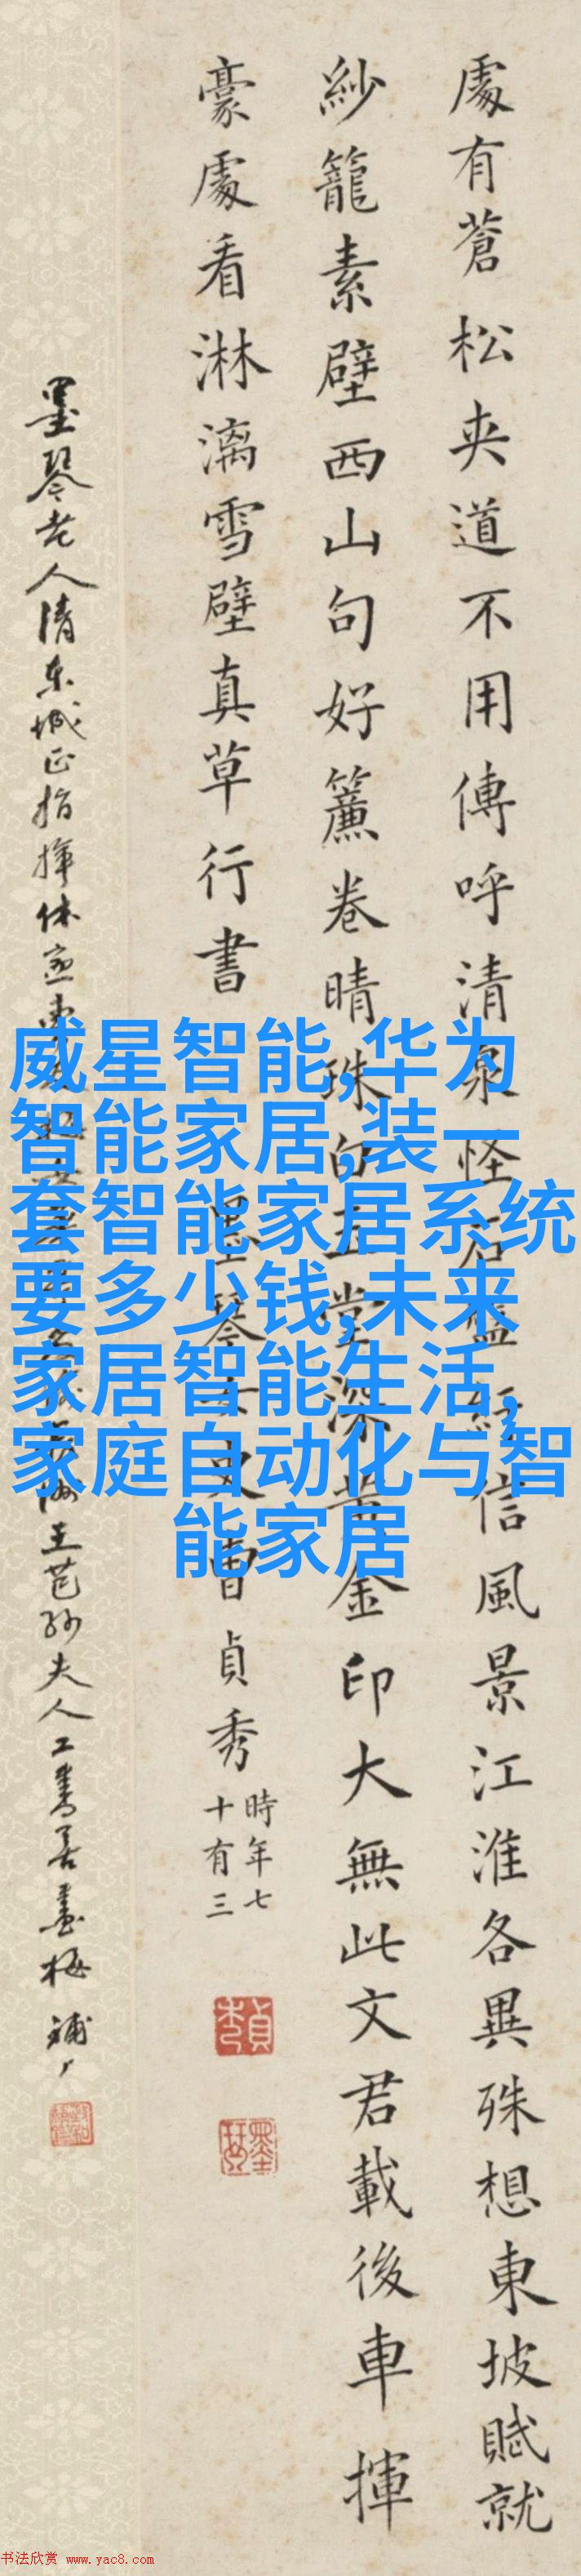 處有蒼松夾道不用傳呼清泉怪石盤紆信風景江淮各異殊想東坡賦就
紗籠素壁西山句好簾卷晴珠白玉堂深黃金印大無此文君載後車揮
豪處看淋漓雪壁真草行書
墨琴女史曹貞秀
時年七
十有三
墨琴老人清东城正指揮休
王芑孙夫人工書善畫梅
威星智能,华为
智能家居,装一
套智能家居系统
要多少钱,未来
家居智能生活,
家庭自动化与智
能家居
书法欣赏 www.yac8.com